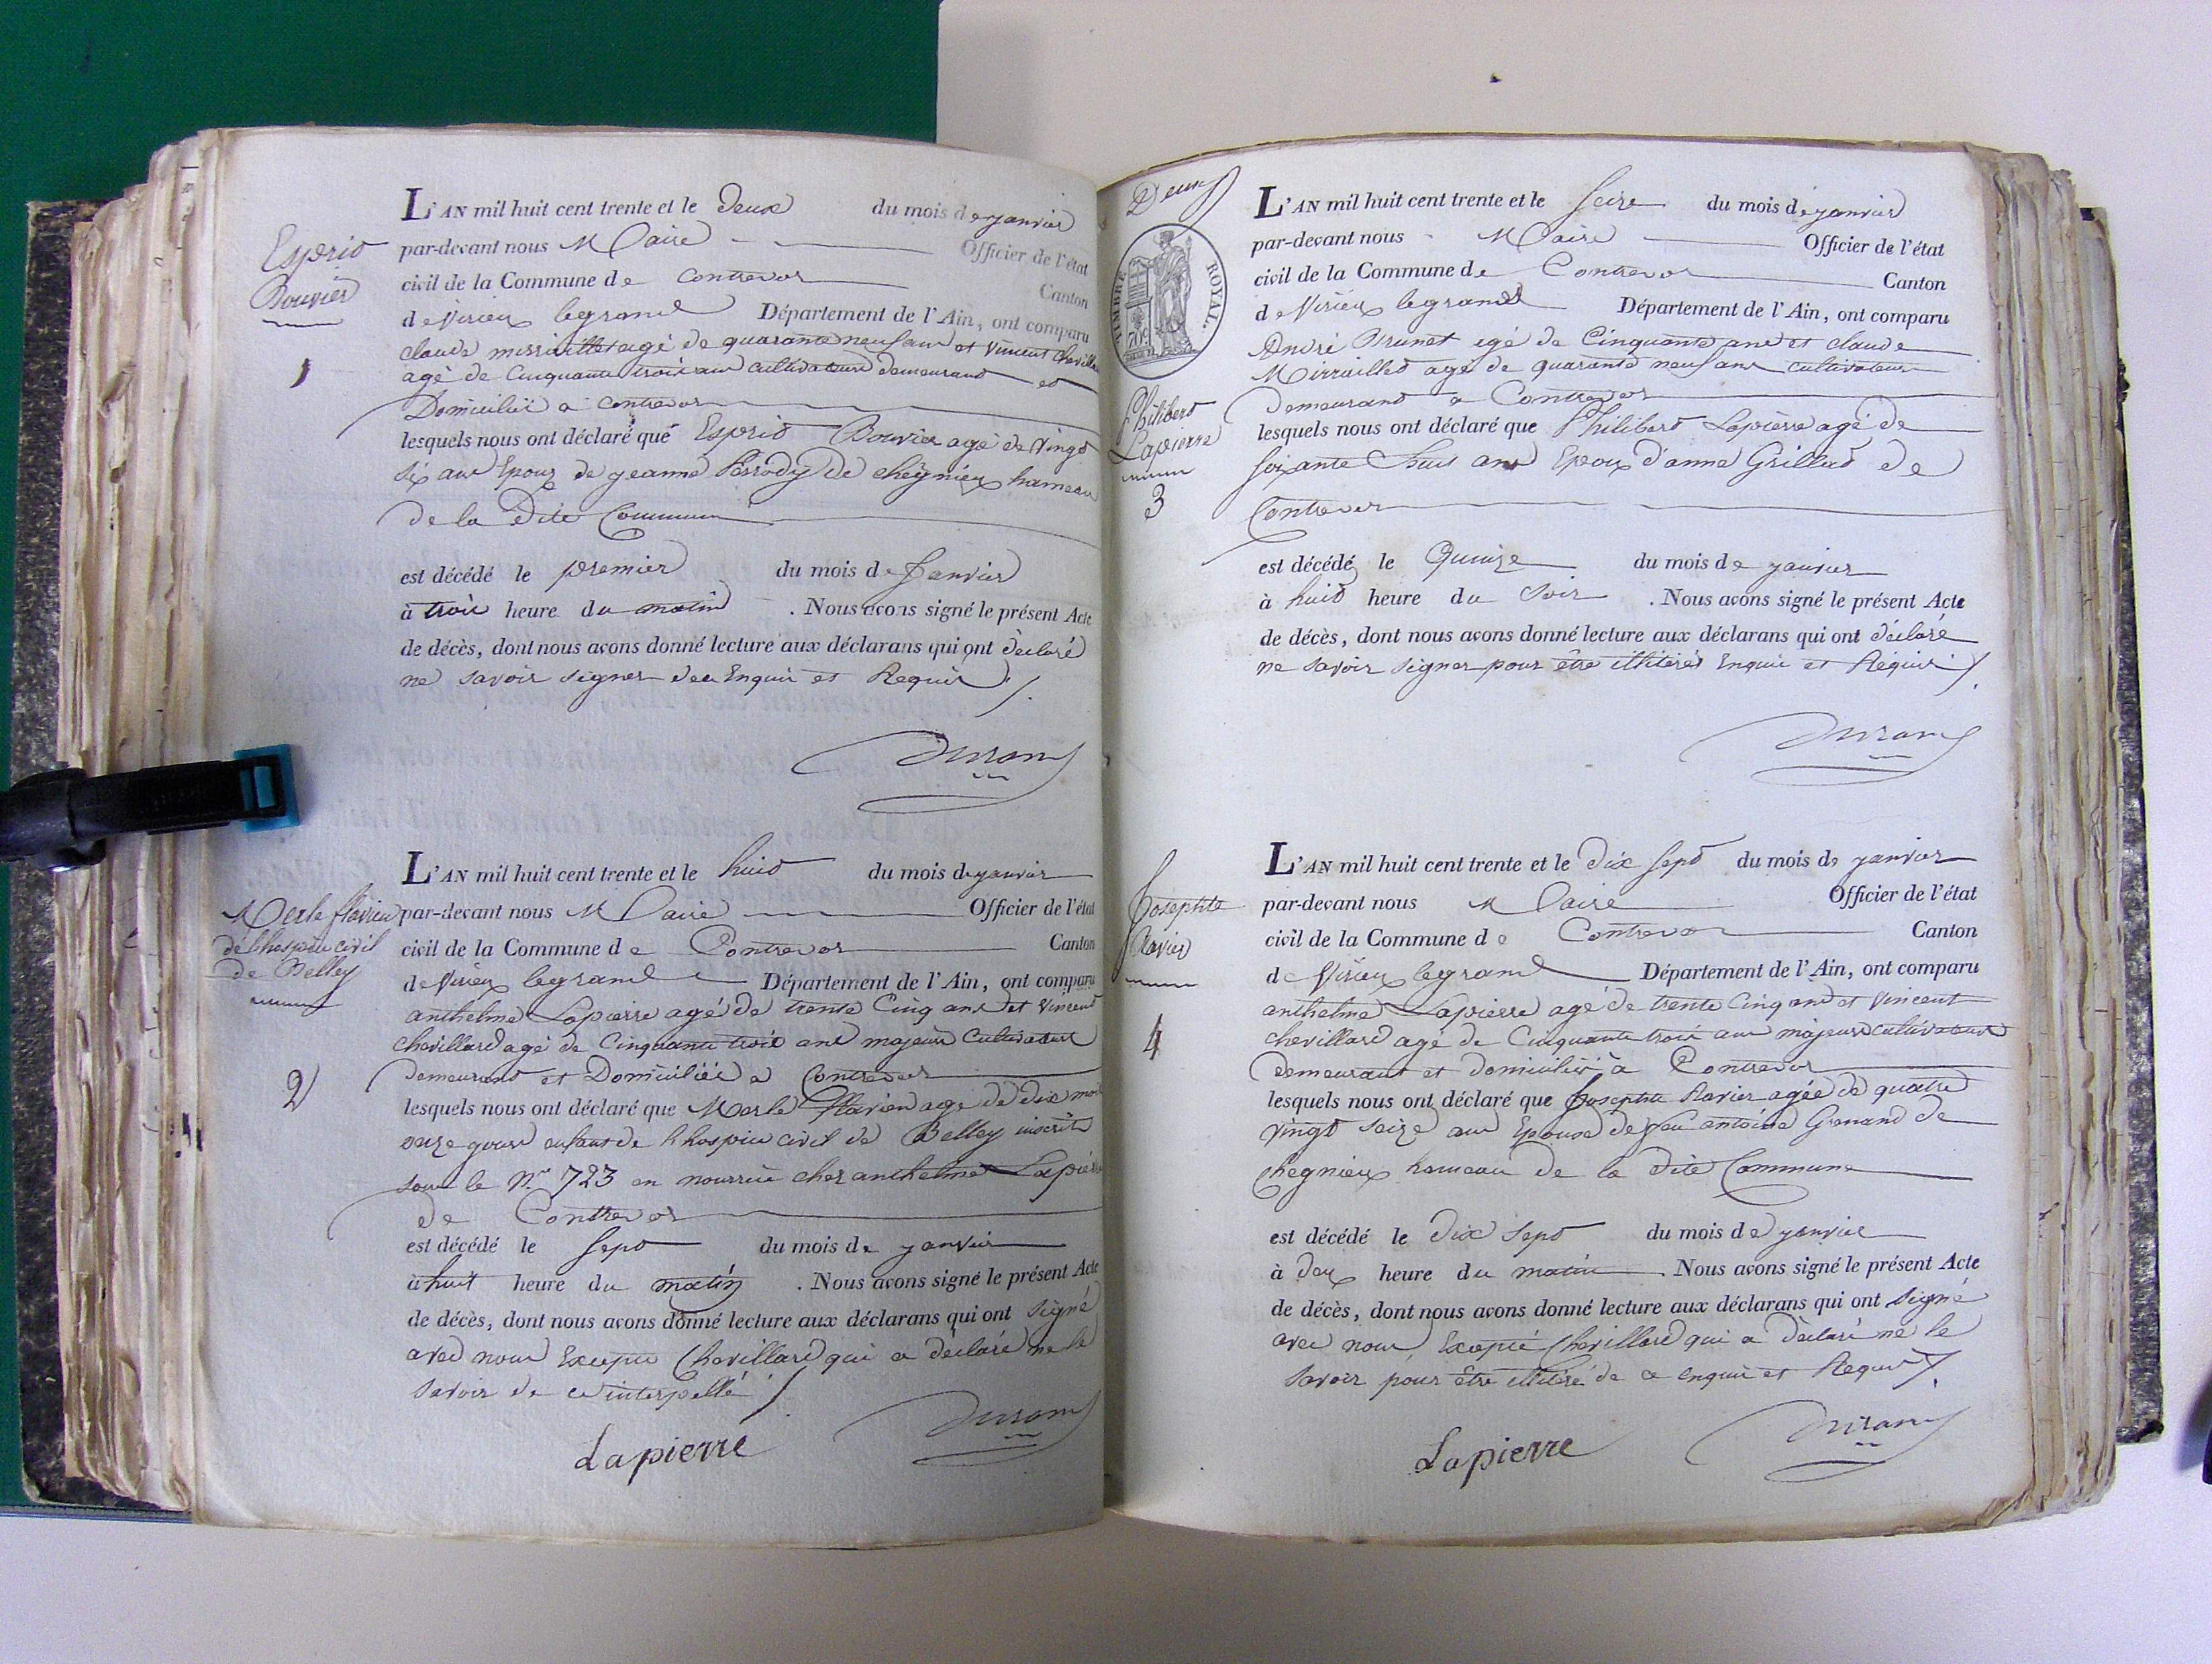 Esprit
Bouvier
1
L'AN mil huit cent trente et le deux du mois de janvier
par-devant nous Maire Officier de l'état
civil de la Commune de Contrevoz Canton
de Virieu legrand Département de l'Ain, ont comparu
claude mirraillet agé de quarante neuf ans et Vincent Chevillard
agé de Cinquante trois ans cultivateurs demeurant et
Domiciliés a Contrevoz
lesquels nous ont déclaré que Esprit Bouvier agé de Vingt
six ans Epoux de jeanne Perrody de cheignieu hameau
de la Dite Commune
est décédé le premier du mois de Janvier
à trois heure du matin . Nous avons signé le présent Acte
de décès, dont nous avons donné lecture aux déclarans qui ont déclaré
ne savoir signer de ce Enquis et Requis
Durand
Merle flavien
de l'hospice civil
de Belley
2
L'AN mil huit cent trente et le huit du mois de janvier
par-devant nous Maire Officier de l'état
civil de la Commune de Contrevoz Canton
de Virieu legrand Département de l'Ain, ont comparu
anthelme Lapierre agé de trente Cinq ans et Vincent
chevillard agé de Cinquante trois ans majeurs Cultivateurs
demeurant et Domiciliés a Contrevoz
lesquels nous ont déclaré que Merle flavien agé de dix mois
onze jours enfant de l'hospice civil de Belley inscrit
sous le N.o 723 en nourrice chez anthelme Lapierre
de Contrevoz
est décédé le sept du mois de janvier
à huit heure du matin . Nous avons signé le présent Acte
de décès, dont nous avons donné lecture aux déclarans qui ont signé
avec nous Excepté Chevillard qui a déclaré ne le
savoir de ce interpellé
Lapierre Durand
Deux
TIMBRE ROYAL.
70c
Philibert
Lapierre
3
L'AN mil huit cent trente et le Seize du mois de janvier
par-devant nous Maire Officier de l'état
civil de la Commune de Contrevoz Canton
de Virieu legrand Département de l'Ain, ont comparu
André Brunet agé de Cinquante ans et claude
Mirraillet agé de quarante neuf ans cultivateurs
demeurant a Contrevoz
lesquels nous ont déclaré que Philibert Lapierre agé de
soixante huit ans Epoux d'anne Grillet de
Contrevoz
est décédé le Quinze du mois de janvier
à huit heure du Soir . Nous avons signé le présent Acte
de décès, dont nous avons donné lecture aux déclarans qui ont déclaré
ne savoir signer pour être illitérés Enquis et Requis
Durand
Josephte
Ravier
4
L'AN mil huit cent trente et le dix sept du mois de janvier
par-devant nous Maire Officier de l'état
civil de la Commune de Contrevoz Canton
de Virieu legrand Département de l'Ain, ont comparu
anthelme Lapierre agé de trente Cinq ans et Vincent
chevillard agé de Cinquante trois ans majeurs cultivateurs
demeurant et domiciliés à Contrevoz
lesquels nous ont déclaré que Josephte Ravier agée de quatre
vingt seize ans Epouse de feu antoine Grenand de
Chegnieu hameau de la dite Commune
est décédé le dix sept du mois de janvier
à deux heure du matin Nous avons signé le présent Acte
de décès, dont nous avons donné lecture aux déclarans qui ont signé
avec nous Excepté Chevillard qui a déclaré ne le
savoir pour être illitéré de ce enquis et Requis
Lapierre Durand